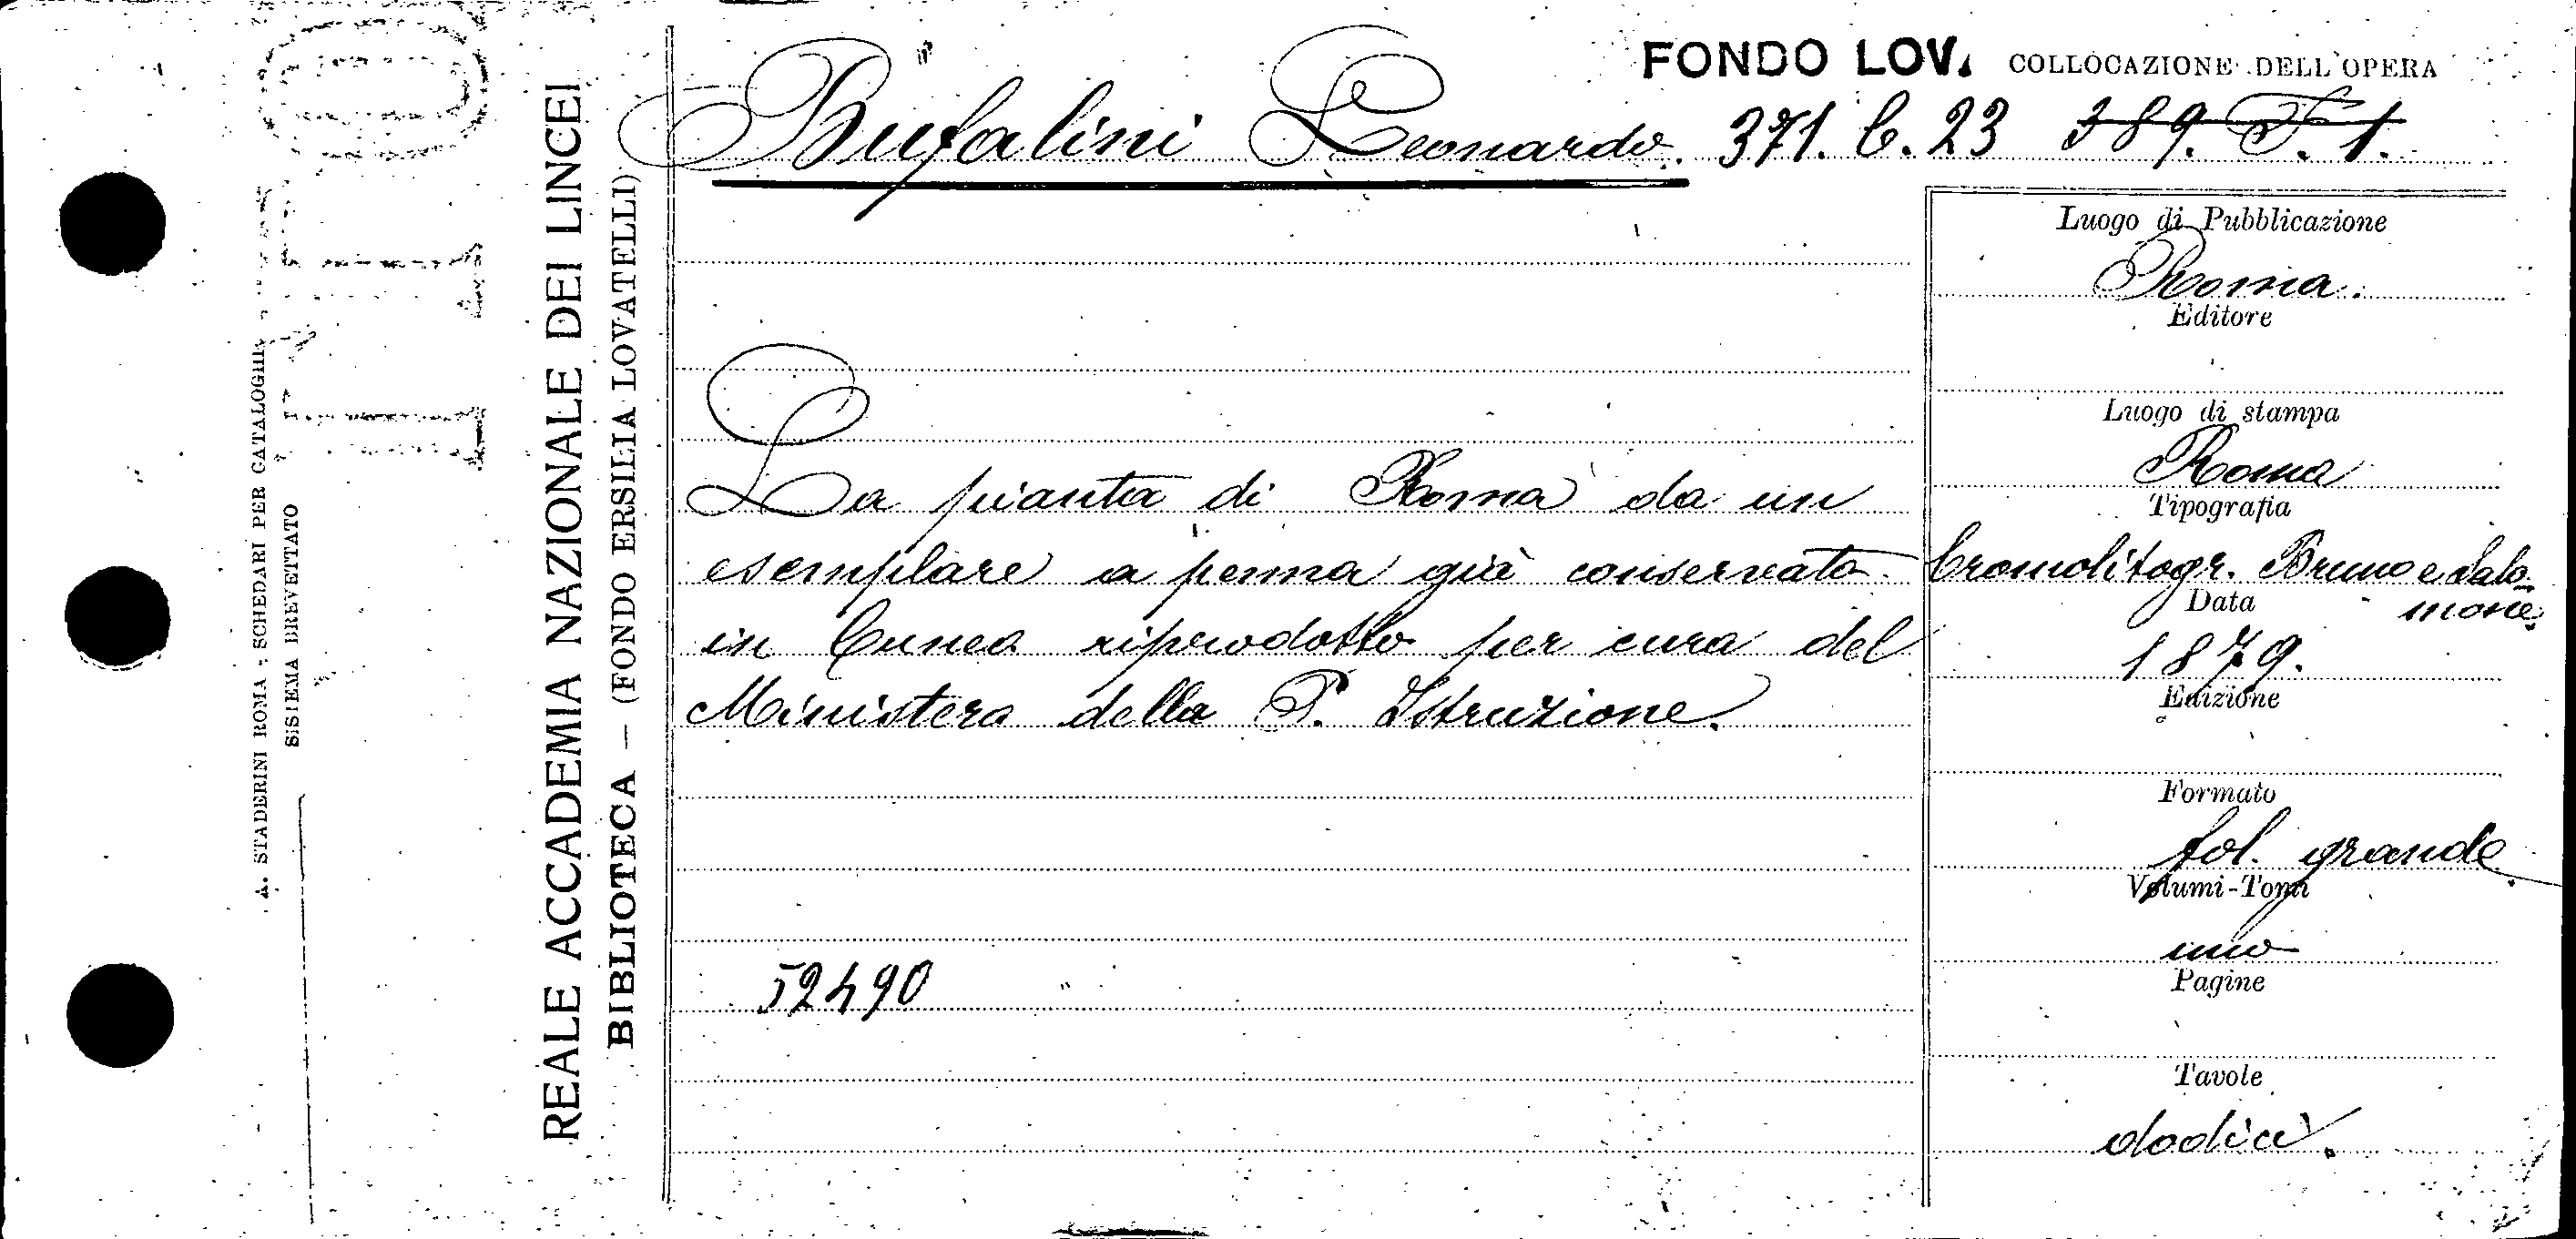 FONDO LOV. COLLOCAZIONE DELL'OPERA
Bufalini Leonardo. 371. C. 23 389. F. 1.
La pianta di Roma da un
esemplare a penna già conservato
in Cuneo riprodotto per cura del
Ministero della P. Istruzione.
52490
Luogo di Pubblicazione
Roma.
Editore
Luogo di stampa
Roma
Tipografia
Cromolitogr. Bruno e Salo-
mone.
Data
1879.
Edizione
Formato
fol. grande
Volumi-Tomi
uno
Pagine
Tavole
dodici.
REALE ACCADEMIA NAZIONALE DEI LINCEI
BIBLIOTECA — (FONDO ERSILIA LOVATELLI)
A. STADERINI ROMA - SCHEDARI PER CATALOGHI
SISTEMA BREVETTATO